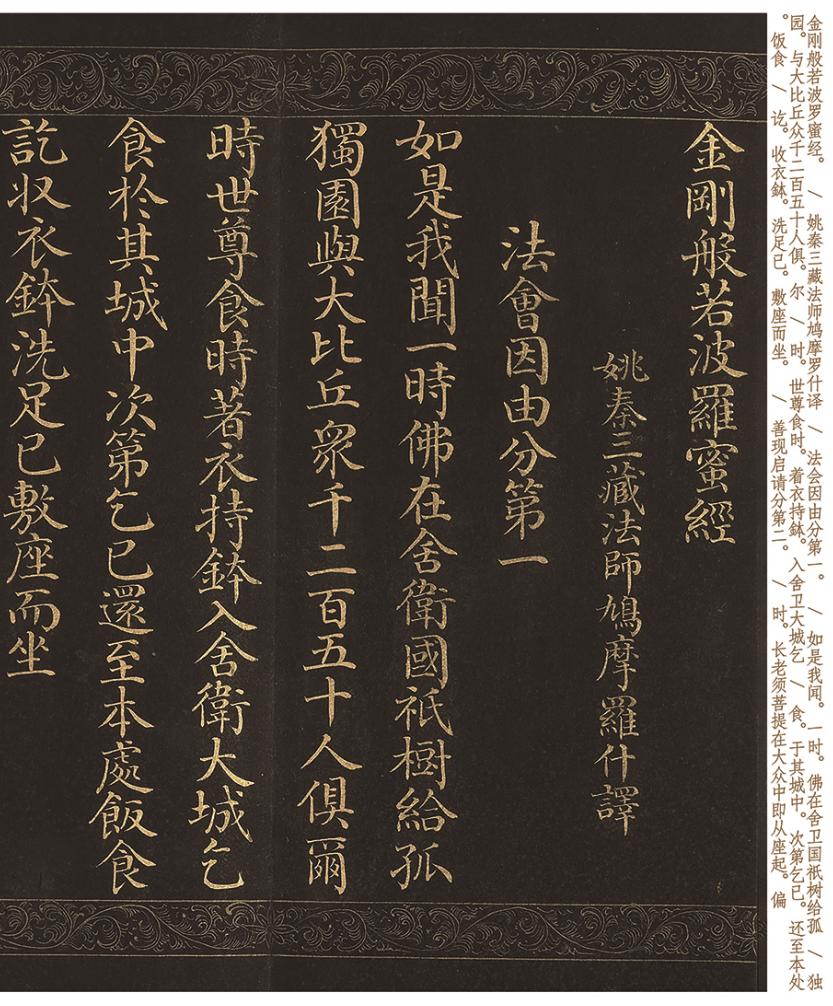 金刚般若波罗蜜经。 / 姚秦三藏法师鸠摩罗什译 / 法会因由分第一。 / 如是我闻。一时。佛在舍卫国祇树给孤 / 独
园。与大比丘众千二百五十人俱。尔 / 时。世尊食时。着衣持鉢。入舍卫大城乞 / 食。于其城中。次第乞已。还至本处
。饭食 / 讫。收衣鉢。洗足已。敷座而坐。 / 善现启请分第二。 / 时。长老须菩提在大众中即从座起。偏
金剛般若波羅蜜經
姚秦三藏法師鳩摩羅什譯
法會因由分第一
如是我聞一時佛在舍衛國祇樹給孤
獨園與大比丘衆千二百五十人俱爾
時世尊食時著衣持鉢入舍衛大城乞
食於其城中次第乞已還至本處飯食
訖収衣鉢洗足已敷座而坐